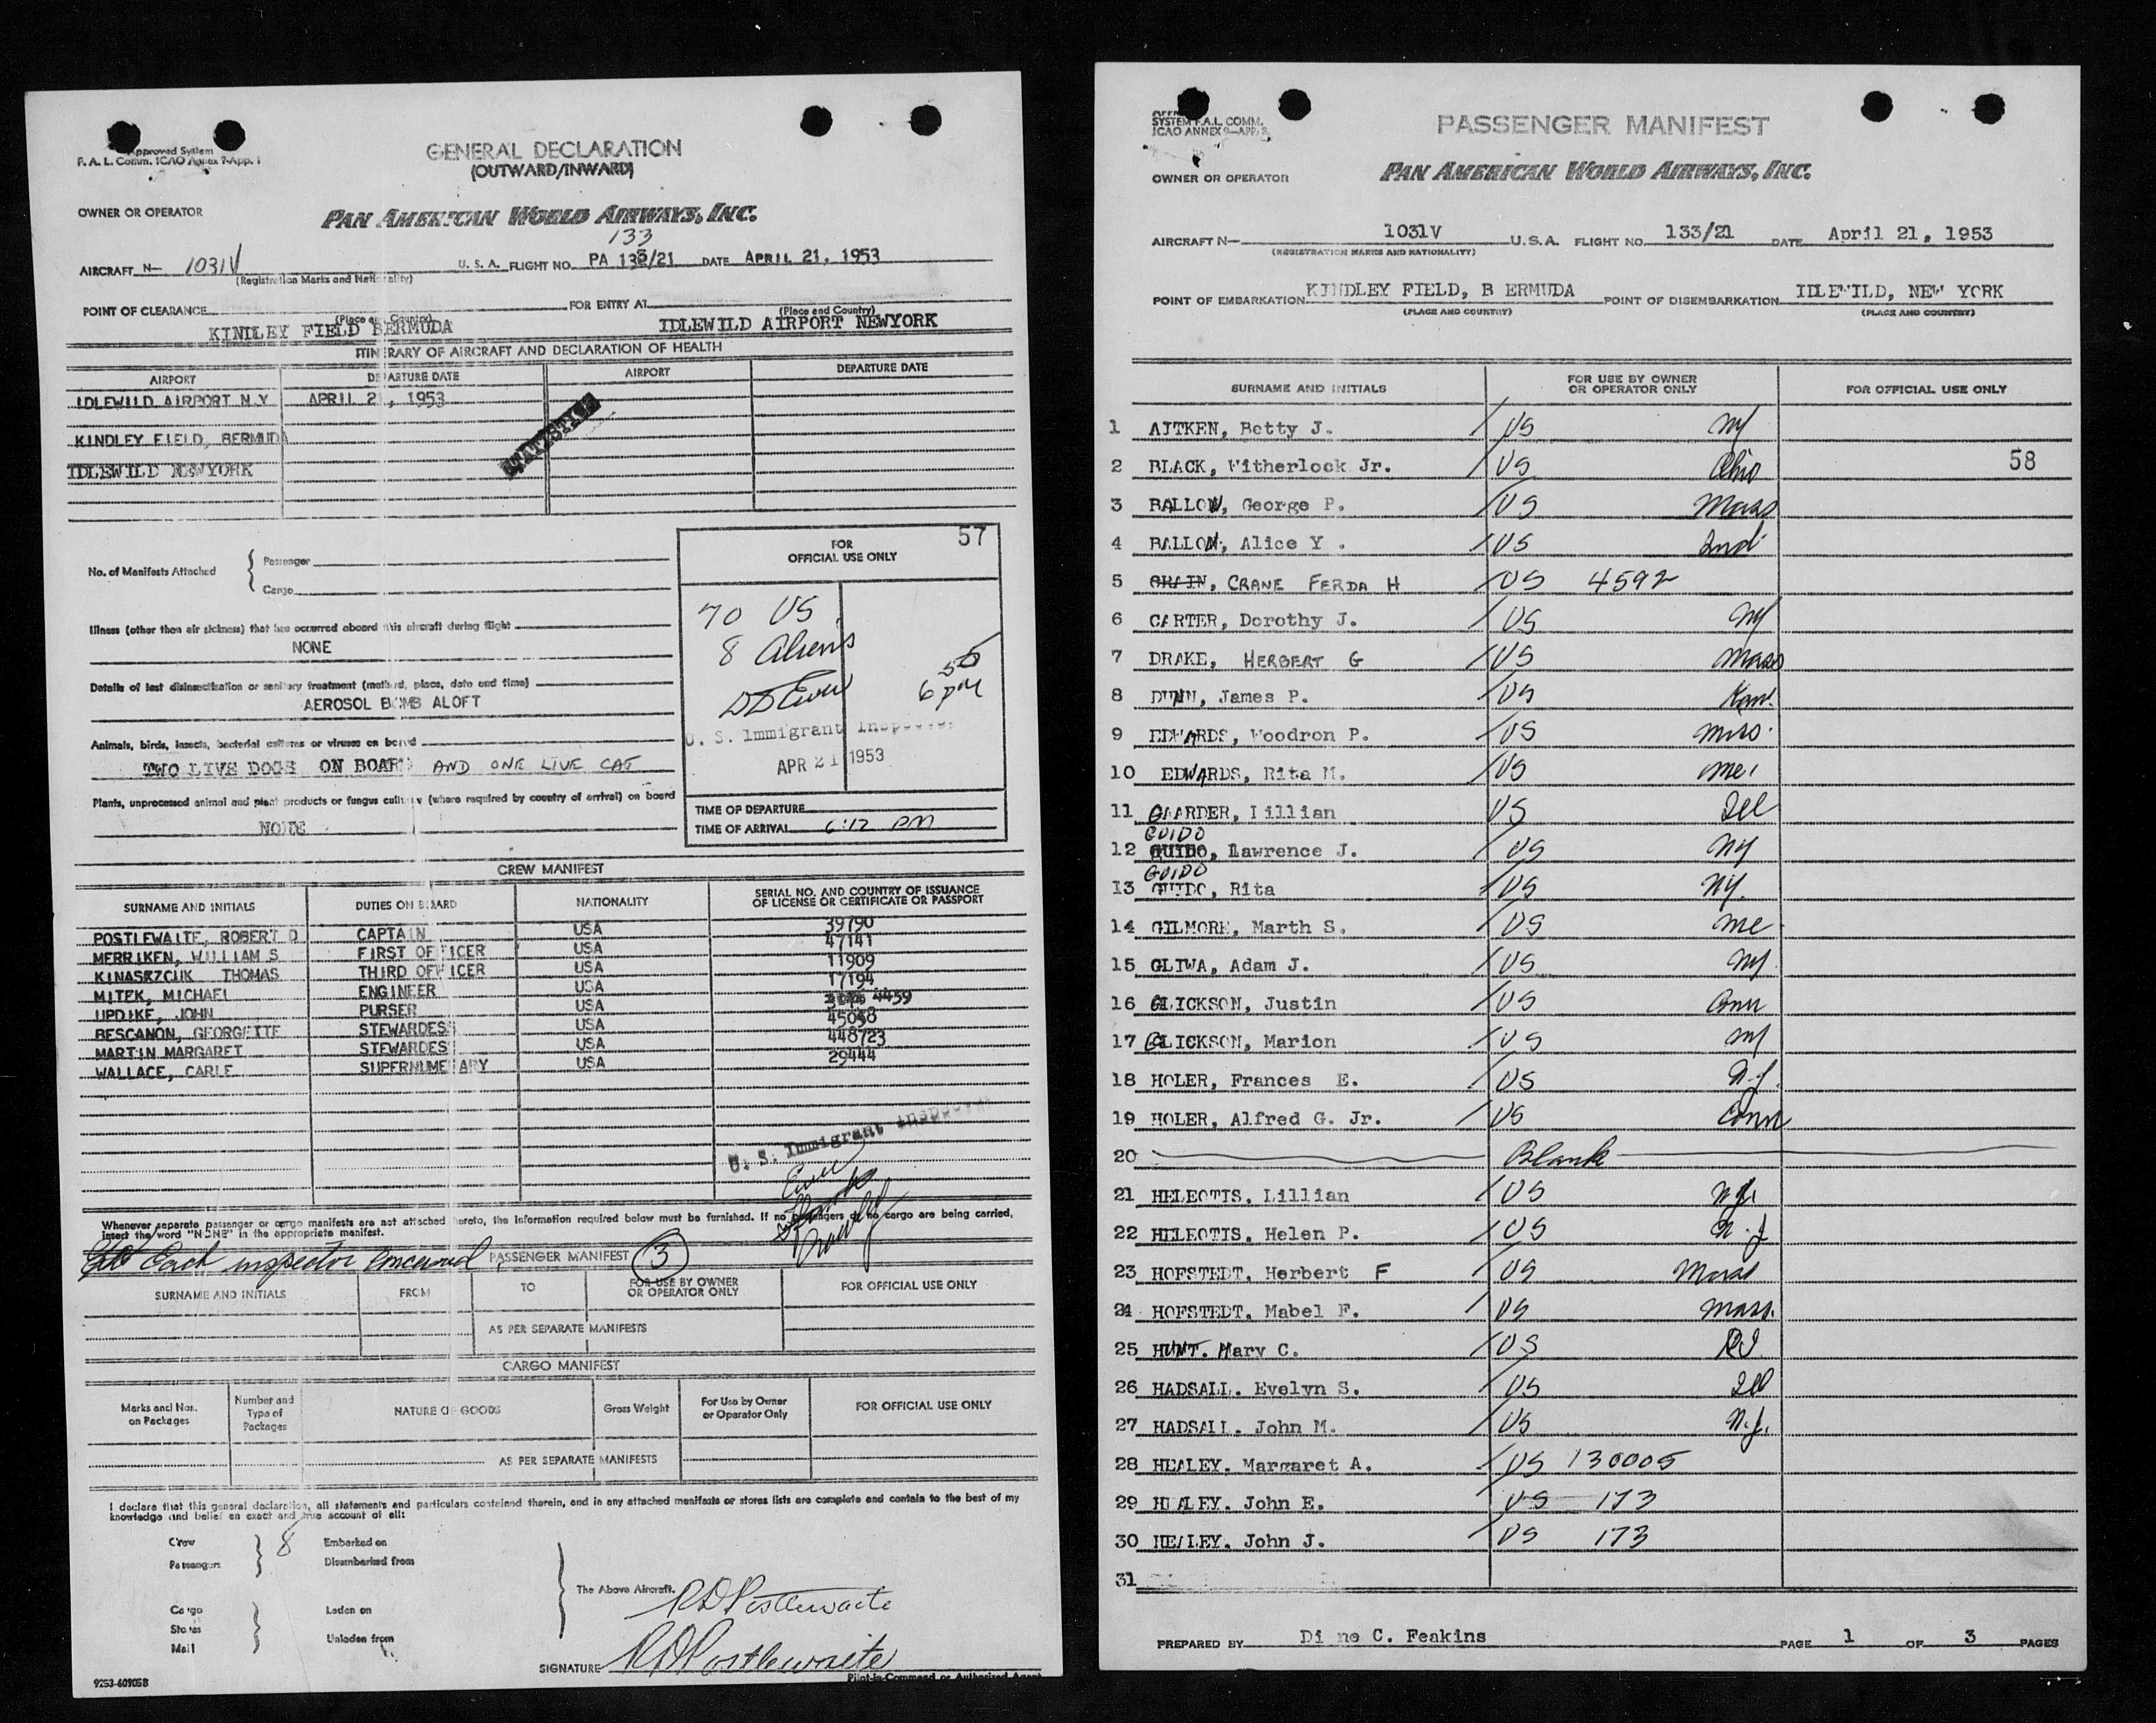 Approved System
F. A. L. Comm. ICAO Annex 9-App. 1
GENERAL DECLARATION
(OUTWARD/INWARD)
OWNER OR OPERATOR
PAN AMERICAN WORLD AIRWAYS, INC.
133
AIRCRAFT N- 1031V U. S. A. FLIGHT NO. PA 135/21 DATE APRIL 21, 1953
(Registration Marks and Nationality)
POINT OF CLEARANCE FOR ENTRY AT
(Place and Country) (Place and Country)
KINDLEY FIELD BERMUDA IDLEWILD AIRPORT NEWYORK
ITINERARY OF AIRCRAFT AND DECLARATION OF HEALTH
AIRPORT DEPARTURE DATE AIRPORT DEPARTURE DATE
IDLEWILD AIRPORT N Y APRIL 21, 1953
KINDLEY FIELD, BERMUDA
IDLEWILD NEWYORK
STATISTICS
57
FOR
OFFICIAL USE ONLY
No. of Manifests Attached
Passenger
Cargo
70 US
8 Aliens
Illness (other than air sickness) that has occurred aboard this aircraft during flight
NONE
50
6 PM
Details of last disinsectization or sanitary treatment (method, place, date and time)
AEROSOL BOMB ALOFT
U. S. Immigrant Inspector
Animals, birds, insects, bacterial cultures or viruses on board
TWO LIVE DOGS ON BOARD AND ONE LIVE CAT
APR 21 1953
Plants, unprocessed animal and plant products or fungus culture (where required by country of arrival) on board
NONE
TIME OF DEPARTURE
TIME OF ARRIVAL 6:12 PM
CREW MANIFEST
SURNAME AND INITIALS DUTIES ON BOARD NATIONALITY SERIAL NO. AND COUNTRY OF ISSUANCE OF LICENSE OR CERTIFICATE OR PASSPORT
POSTLEWAITE, ROBERT D CAPTAIN USA 39790
MERRIKEN, WILLIAM S FIRST OFFICER USA 47141
KINASRZCUK THOMAS THIRD OFFICER USA 11909
MITEK, MICHAEL ENGINEER USA 17194
UPDIKE, JOHN PURSER USA 4459
BESCANON, GEORGETTE STEWARDESS USA 45038
MARTIN MARGARET STEWARDESS USA 448723
WALLACE, CARLE SUPERNUMERARY USA 29444
U. S. Immigrant Inspector
Whenever separate passenger or cargo manifests are not attached hereto, the information required below must be furnished. If no passengers or no cargo are being carried,
insert the word "NONE" in the appropriate manifest.
Each inspector concerned
PASSENGER MANIFEST 3
SURNAME AND INITIALS FROM TO FOR USE BY OWNER OR OPERATOR ONLY FOR OFFICIAL USE ONLY
AS PER SEPARATE MANIFESTS
CARGO MANIFEST
Marks and Nos. on Packages Number and Type of Packages NATURE OF GOODS Gross Weight For Use by Owner or Operator Only FOR OFFICIAL USE ONLY
AS PER SEPARATE MANIFESTS
I declare that this general declaration, all statements and particulars contained therein, and in any attached manifests or stores lists are complete and contain to the best of my
knowledge and belief an exact and true account of all:
Crew 8 Embarked on
Passengers Disembarked from
The Above Aircraft. R D Postlewaite
Cargo Laden on
Stores
Mail Unladen from
SIGNATURE R D Postlewaite
Pilot-in-Command or Authorized Agent
9253-60905B
SYSTEM F.A.L. COMM.
ICAO ANNEX 9-APP. 2
PASSENGER MANIFEST
OWNER OR OPERATOR
PAN AMERICAN WORLD AIRWAYS, INC.
AIRCRAFT N- 1031V U.S.A. FLIGHT NO. 133/21 DATE April 21, 1953
(REGISTRATION MARKS AND NATIONALITY)
POINT OF EMBARKATION KINDLEY FIELD, B ERMUDA POINT OF DISEMBARKATION IDLEWILD, NEW YORK
(PLACE AND COUNTRY) (PLACE AND COUNTRY)
SURNAME AND INITIALS FOR USE BY OWNER OR OPERATOR ONLY FOR OFFICIAL USE ONLY
1 AITKEN, Betty J. / US NY
2 BLACK, Witherlock Jr. / US Ohio 58
3 BALLOW, George P. / US Mass
4 BALLOW, Alice Y . / US Ind
5 GRAIN, CRANE FERDA H / US 4592
6 CARTER, Dorothy J. / US NY
7 DRAKE, HERBERT G / US Mass
8 DUNN, James P. / US Kan.
9 EDWARDS, Woodron P. / US Miss.
10 EDWARDS, Rita M. / US Me.
11 GAARDER, Lillian US Ill
GUIDO
12 GUIDO, Lawrence J. / US NY
GUIDO
13 GUIDO, Rita / US NY.
14 GILMORE, Marth S. / US Me
15 GLIWA, Adam J. / US NY
16 GLICKSON, Justin / US Conn
17 GLICKSON, Marion / US NY
18 HOLER, Frances E. / US N.J.
19 HOLER, Alfred G. Jr. / US Conn
20 Blank
21 HELEOTIS, Lillian / US N.J.
22 HELEOTIS, Helen P. / US N.J
23 HOFSTEDT, Herbert F / US Mass
24 HOFSTEDT, Mabel F. / US Mass.
25 HUNT. Mary C. / US RI
26 HADSALL. Evelyn S. / US Ill
27 HADSALL. John M. / US N.J.
28 HEALEY. Margaret A. / US 130005
29 HEALEY. John E. US 173
30 HEALEY. John J. / US 173
31
PREPARED BY Diane C. Feakins PAGE 1 OF 3 PAGES